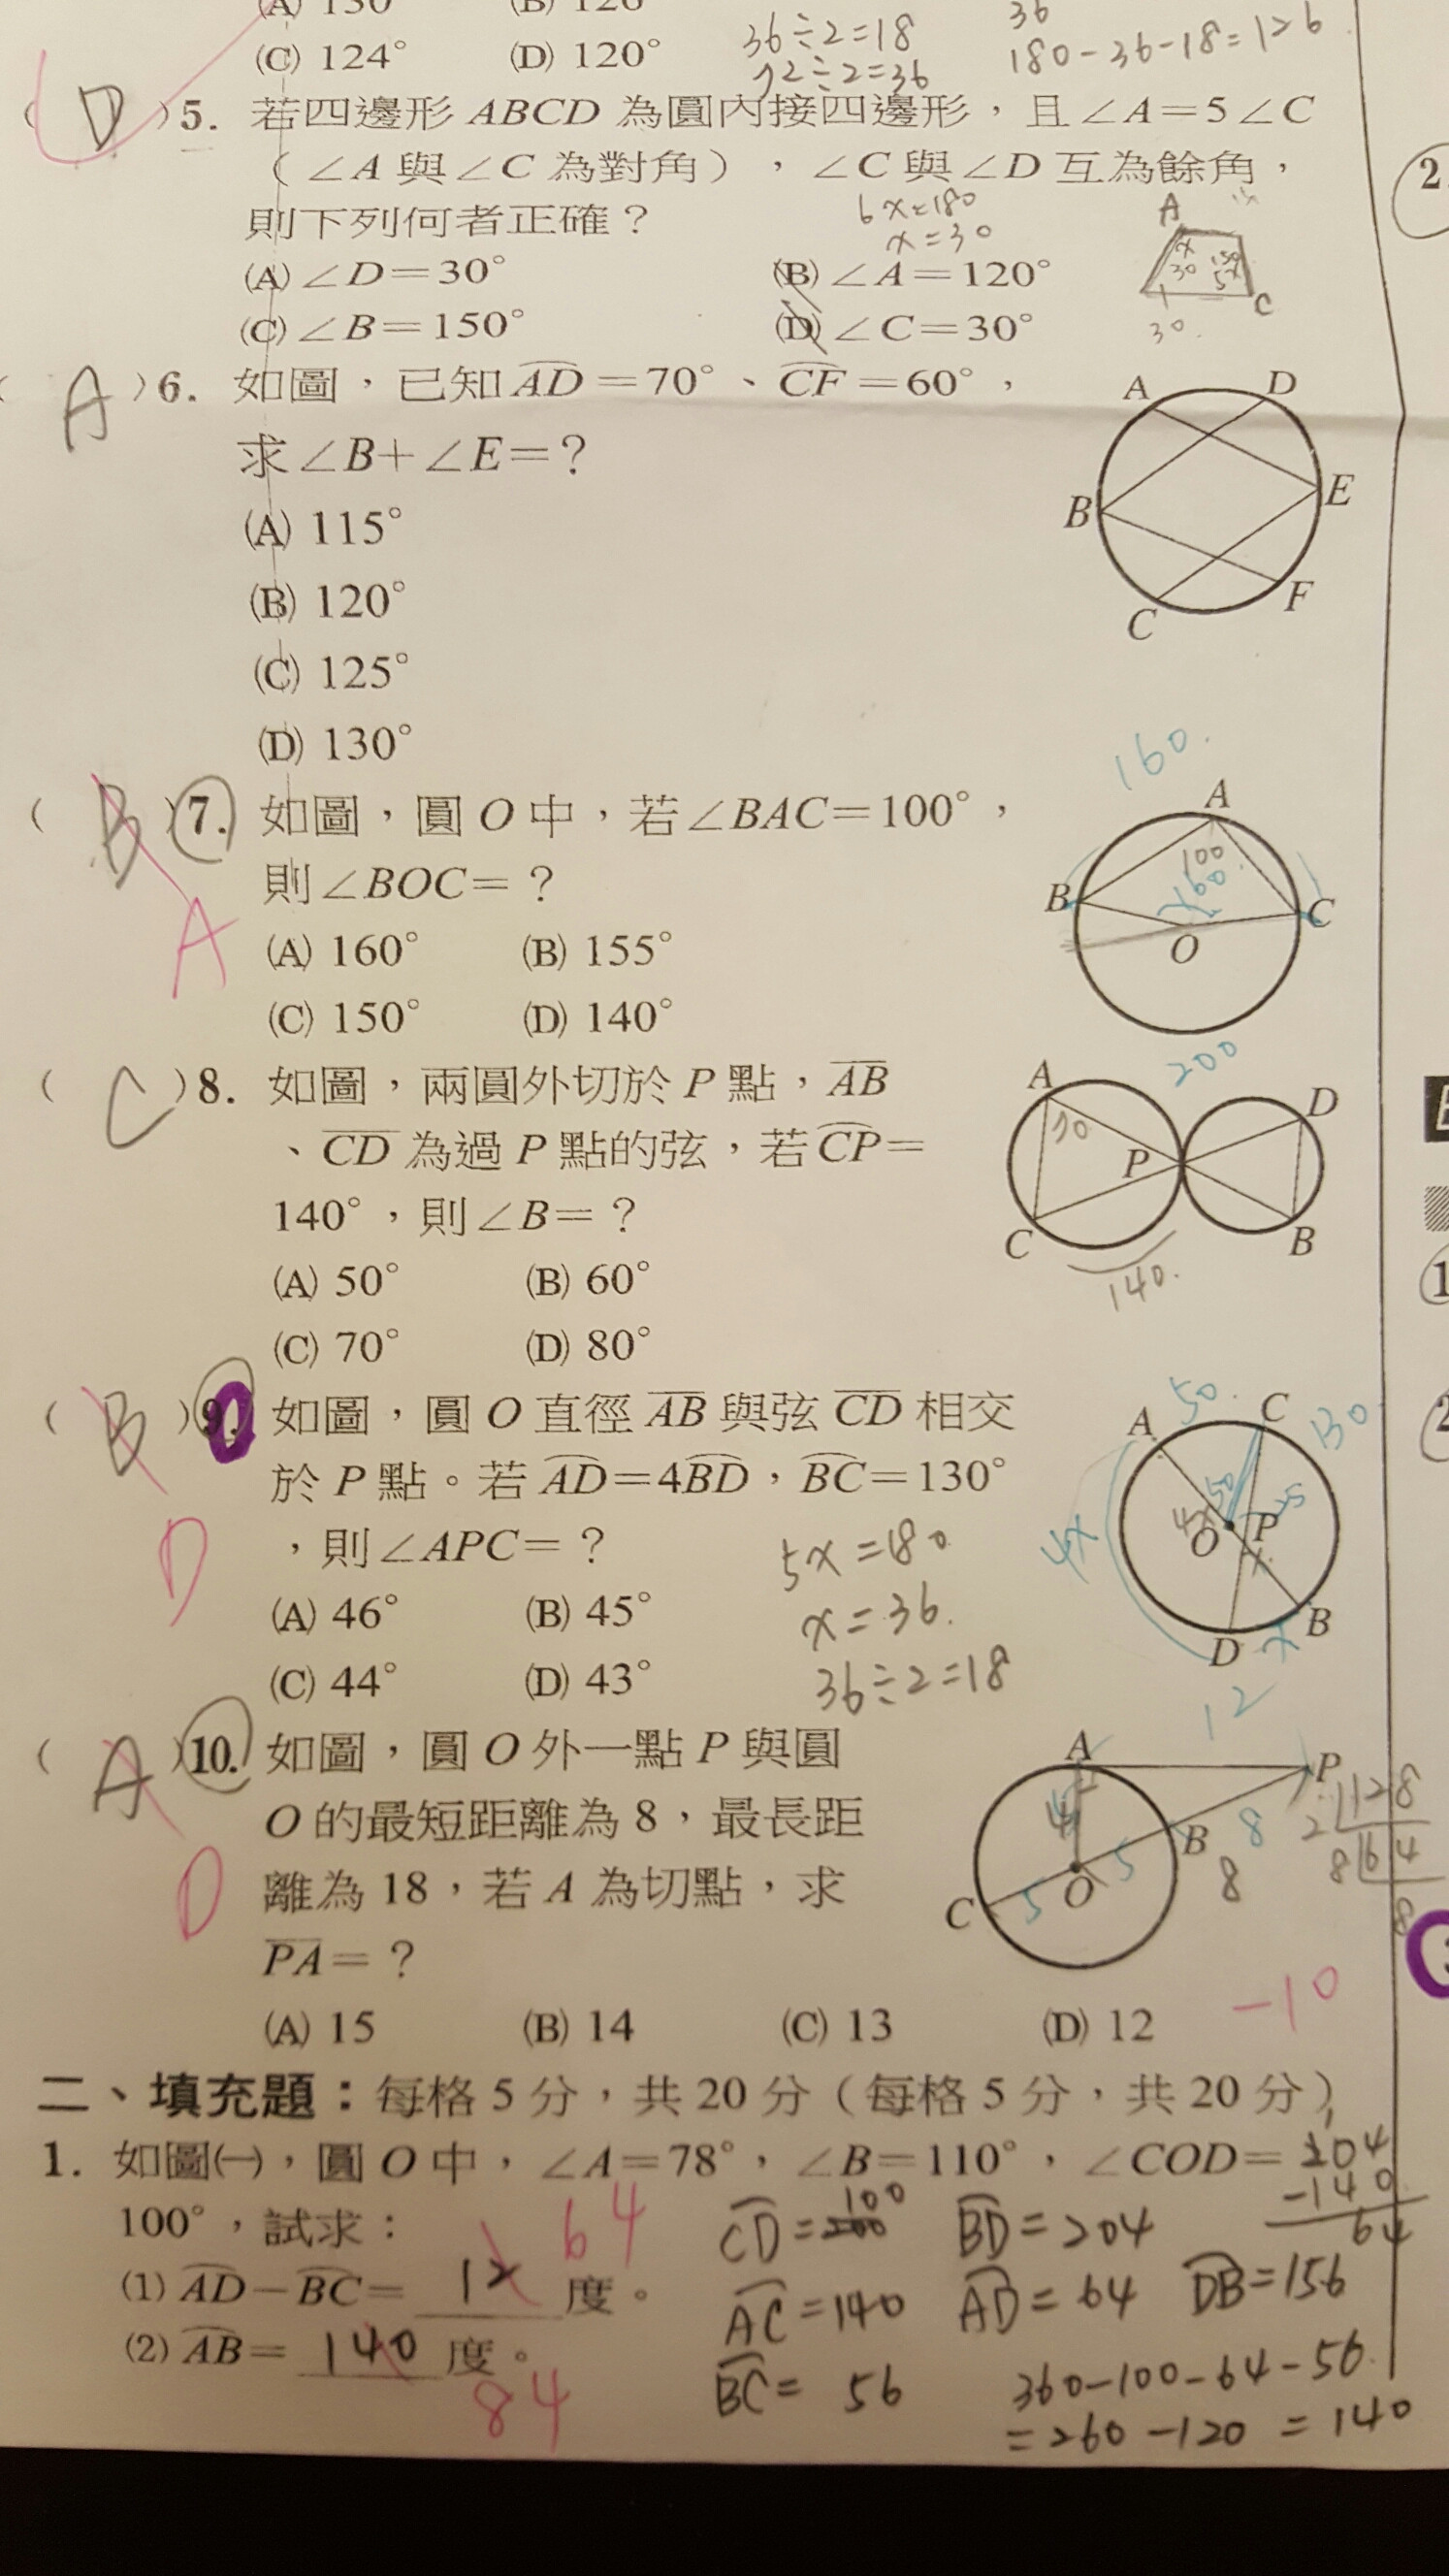 (A) 130 (B) 126
(C) 124° (D) 120°
36÷2=18
72÷2=36
36
180-36-18=126
( D )5. 若四邊形 ABCD 為圓內接四邊形，且∠A=5∠C
（∠A 與∠C 為對角），∠C 與∠D 互為餘角，
則下列何者正確？
6x=180
x=30
(A) ∠D=30° (B) ∠A=120°
(C) ∠B=150° (D) ∠C=30°
A
x
30
150
5x
C
30
( A )6. 如圖，已知 AD=70°、CF=60°，
求∠B+∠E=？
(A) 115°
(B) 120°
(C) 125°
(D) 130°
A D
B E
C F
( B )7. 如圖，圓 O 中，若∠BAC=100°，
A
則∠BOC=？
(A) 160° (B) 155°
(C) 150° (D) 140°
160
A
100
160
B C
O
200
( C )8. 如圖，兩圓外切於 P 點，AB
、CD 為過 P 點的弦，若 CP=
140°，則∠B=？
(A) 50° (B) 60°
(C) 70° (D) 80°
A D
70
P
C B
140
( B )9. 如圖，圓 O 直徑 AB 與弦 CD 相交
於 P 點。若 AD=4BD，BC=130°
D
，則∠APC=？
(A) 46° (B) 45°
(C) 44° (D) 43°
5x=180
x=36
36÷2=18
50
A C 130
50
4x 4x
O P
x
D x B
( A )10. 如圖，圓 O 外一點 P 與圓
O 的最短距離為 8，最長距
D
離為 18，若 A 為切點，求
PA=？
(A) 15 (B) 14 (C) 13 (D) 12
12
A P
5 B 8
C 5 O 8
2 128
8 64
8
-10
二、填充題：每格 5 分，共 20 分（每格 5 分，共 20 分）
1. 如圖㈠，圓 O 中，∠A=78°，∠B=110°，∠COD=
100°，試求：
(1) AD-BC= 12 度。
64
(2) AB= 140 度。
84
204
-140
64
CD=100 BD=204
AC=140 AD=64 DB=156
BC=56
360-100-64-56
=260-120=140
2
1
2